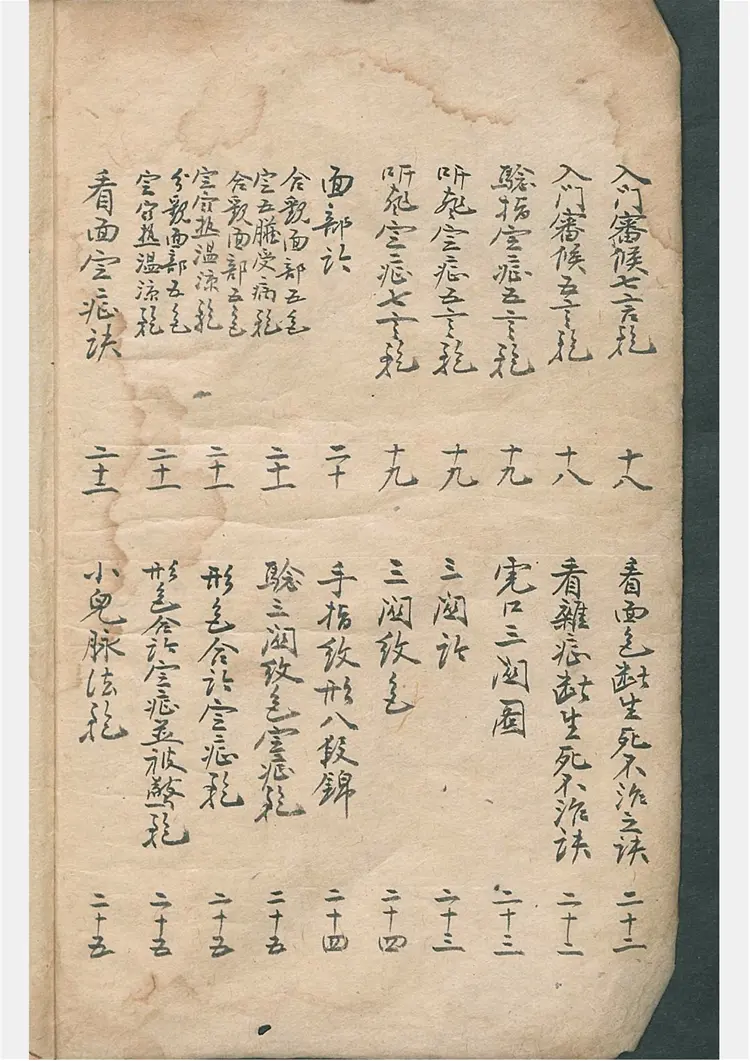 入门審候七言歌 十八
入门審候五言歌 十八
驗指定症五言歌 十九
听声定症五言歌 十九
听声定症七言歌 十九
面部论 二十
合歌面部五色
定五臟受病歌 二十一
合歌面部五色
定寒热温凉歌 二十一
分歌面部五色
定寒热温凉歌 二十一
看面定症訣 二十一
看面色断生死不治之訣 二十二
看雜症断生死不治訣 二十二
虎口三関圖 二十三
三関论 二十三
三関纹色 二十四
手指纹形八段錦 二十四
驗三関纹色定症歌 二十五
形色合论定症歌 二十五
形色合论定症並被驚歌 二十五
小兒脉法歌 二十五